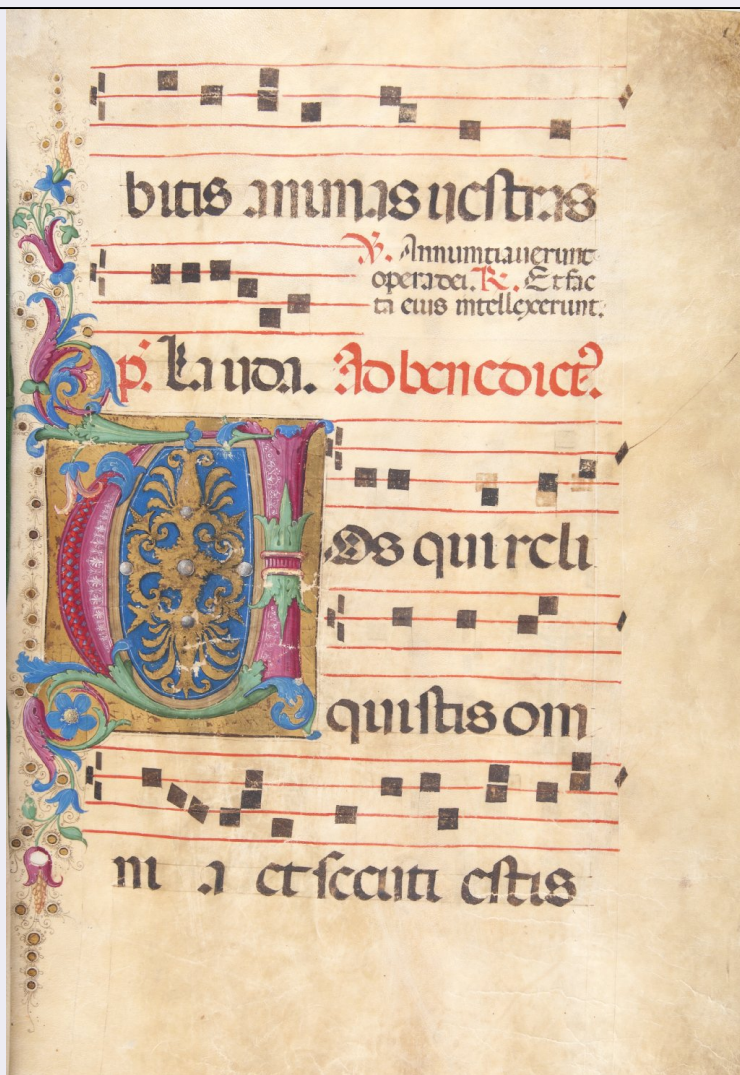 bitis animas uestras
℣. Annuntiauerunt
opera dei. ℟. Et fac
ta eius intellexerunt.
p̄. Lauda. Ad benedict̄.
VOs qui reli
quistis om
ni a et secuti estis